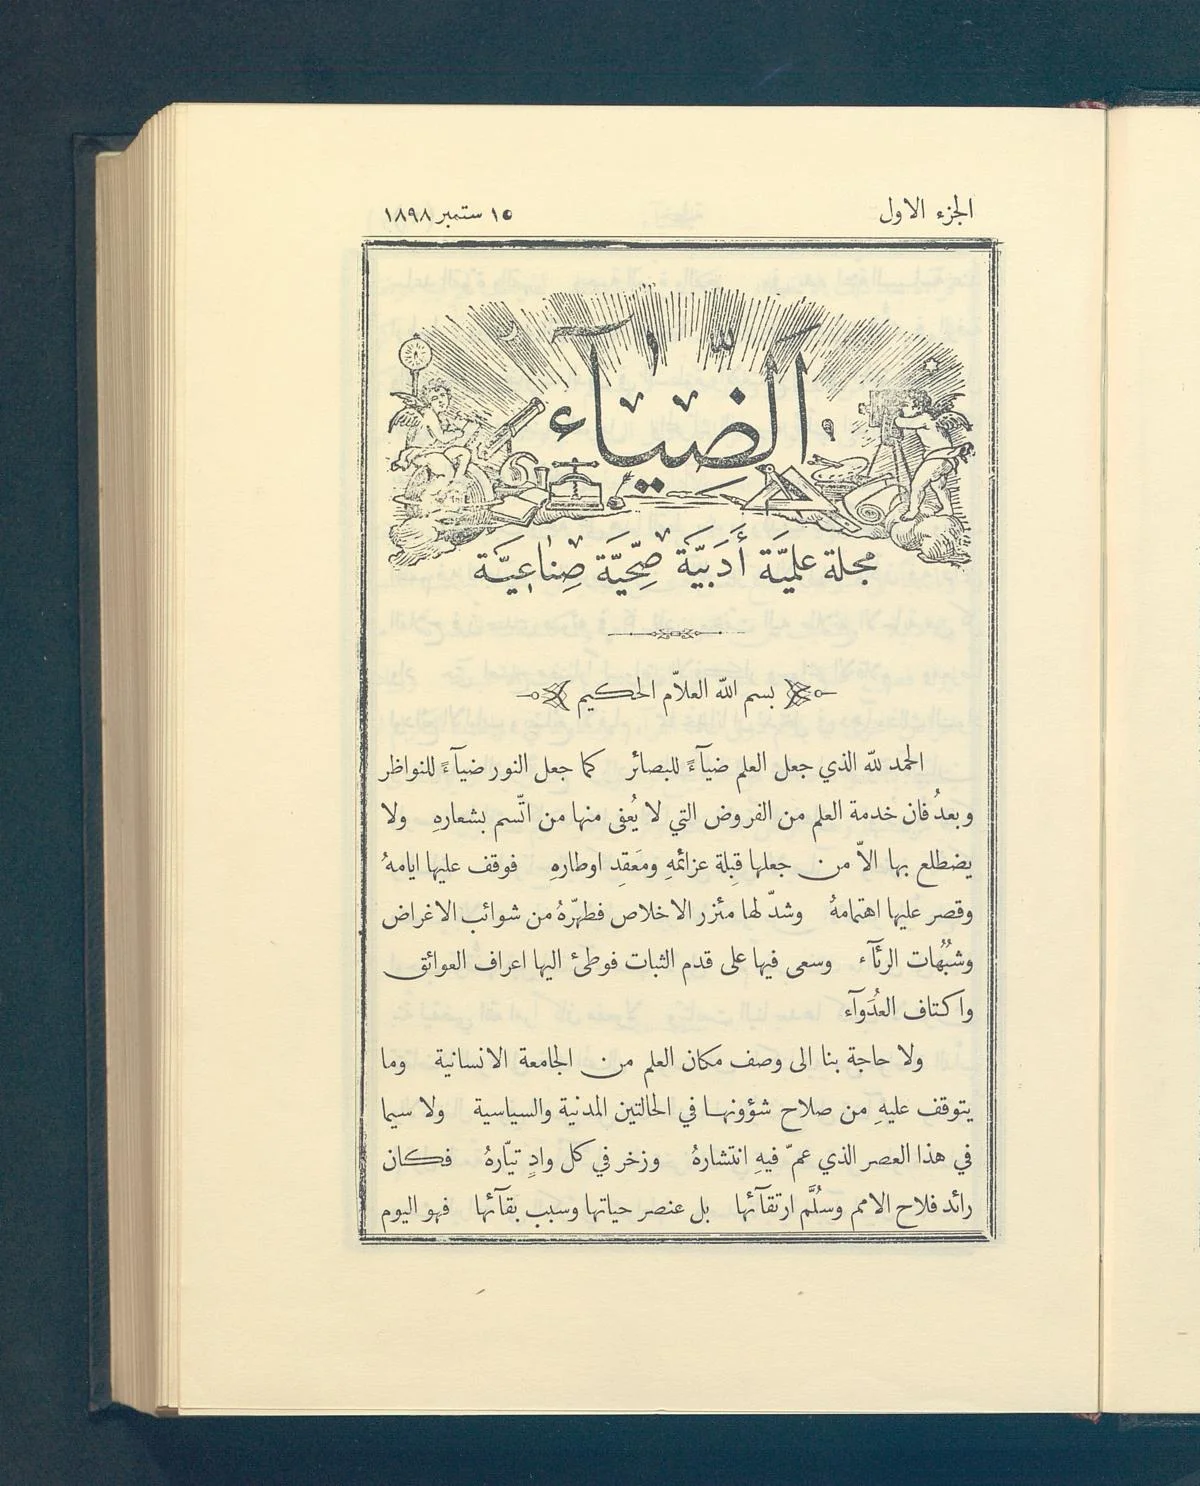 الجزء الاول
١٥ ستمبر ١٨٩٨
اَلضّيَآء
مجلة علميَّة أَدَبيَّة صِحّيَّة صِناعيَّة
بسم الله العلاّم الحكيم
الحمد لله الذي جعل العلم ضيآءً للبصائر كما جعل النور ضيآءً للنواظر
وبعدُ فان خدمة العلم من الفروض التي لا يُعفى منها من اتّسم بشعارهِ ولا
يضطلع بها الاّ من جعلها قِبلة عزائمهِ ومَعقِد اوطارهِ فوقف عليها ايامهُ
وقصر عليها اهتمامهُ وشدّ لها مئزر الاخلاص فطهّرهُ من شوائب الاغراض
وشبُهات الرئآء وسعى فيها على قدم الثبات فوطئ اليها اعراف العوائق
واكتاف العُدَوآء
ولا حاجة بنا الى وصف مكان العلم من الجامعة الانسانية وما
يتوقف عليهِ من صلاح شؤونها في الحالتين المدنية والسياسية ولا سيما
في هذا العصر الذي عمّ فيهِ انتشارهُ وزخر في كل وادٍ تيّارهُ فكان
رائد فلاح الامم وسُلَّم ارتقآئها بل عنصر حياتها وسبب بقآئها فهو اليوم